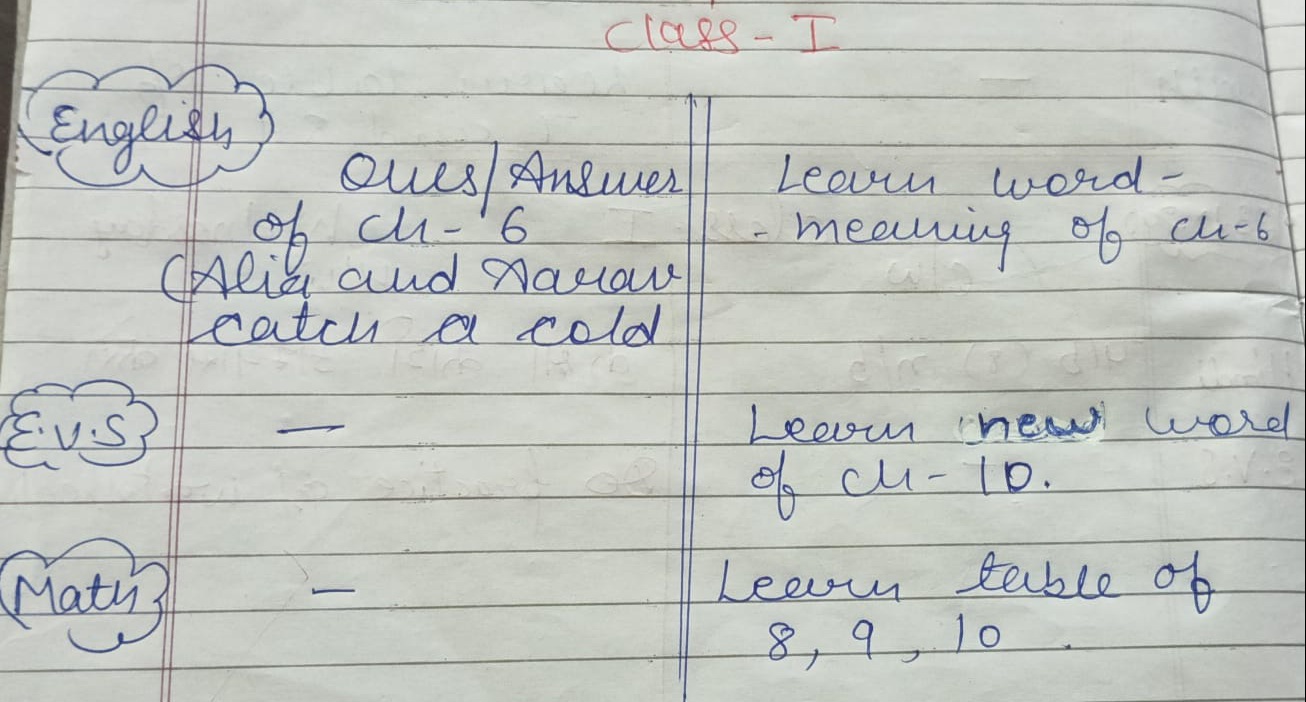 Class - I
English
Ques/Answer
of ch - 6
(Alia and Aarav
catch a cold
Learn word -
- meaning of ch-6
E.V.S
—
Learn new word
of ch - 10.
Math
—
Learn table of
8, 9, 10.